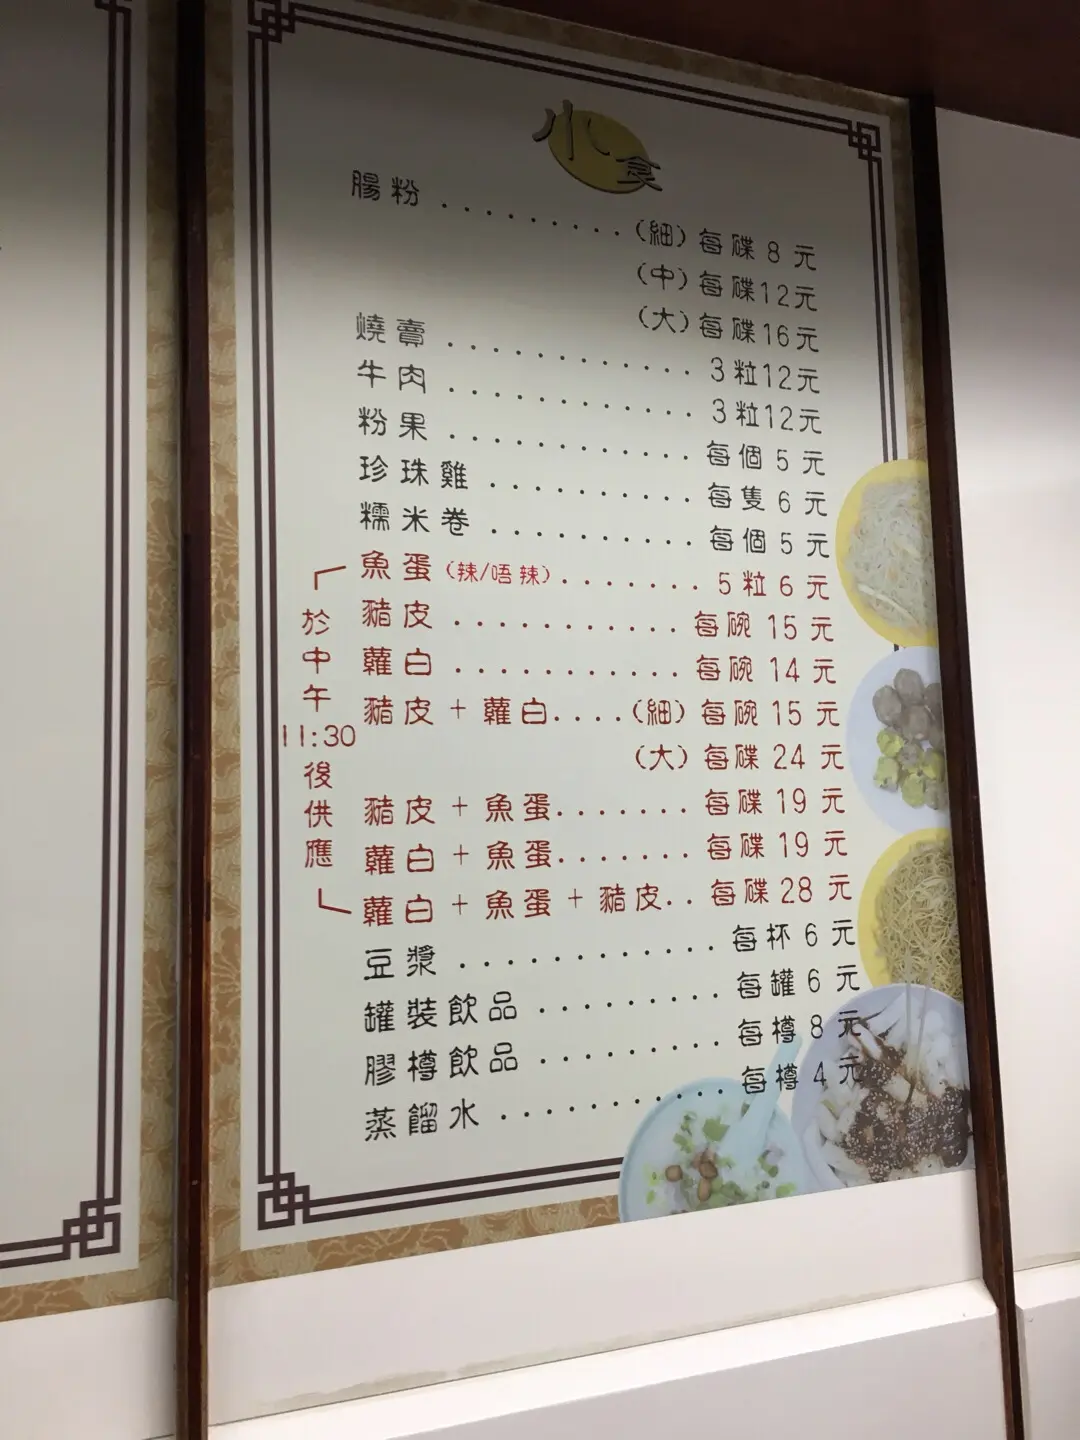 小食
腸粉 .......... (細) 每碟 8 元
(中) 每碟 12 元
(大) 每碟 16 元
燒賣 ............ 3 粒 12 元
牛肉 ............ 3 粒 12 元
粉果 ............ 每個 5 元
珍珠雞 .......... 每隻 6 元
糯米卷 .......... 每個 5 元
魚蛋 (辣/唔辣) ....... 5 粒 6 元
豬皮 ........... 每碗 15 元
蘿白 ........... 每碗 14 元
豬皮 + 蘿白 .... (細) 每碗 15 元
(大) 每碟 24 元
豬皮 + 魚蛋 ....... 每碟 19 元
蘿白 + 魚蛋 ....... 每碟 19 元
蘿白 + 魚蛋 + 豬皮 .. 每碟 28 元
於中午11:30後供應
豆漿 ............ 每杯 6 元
罐裝飲品 ......... 每罐 6 元
膠樽飲品 ......... 每樽 8 元
蒸餾水 ........... 每樽 4 元